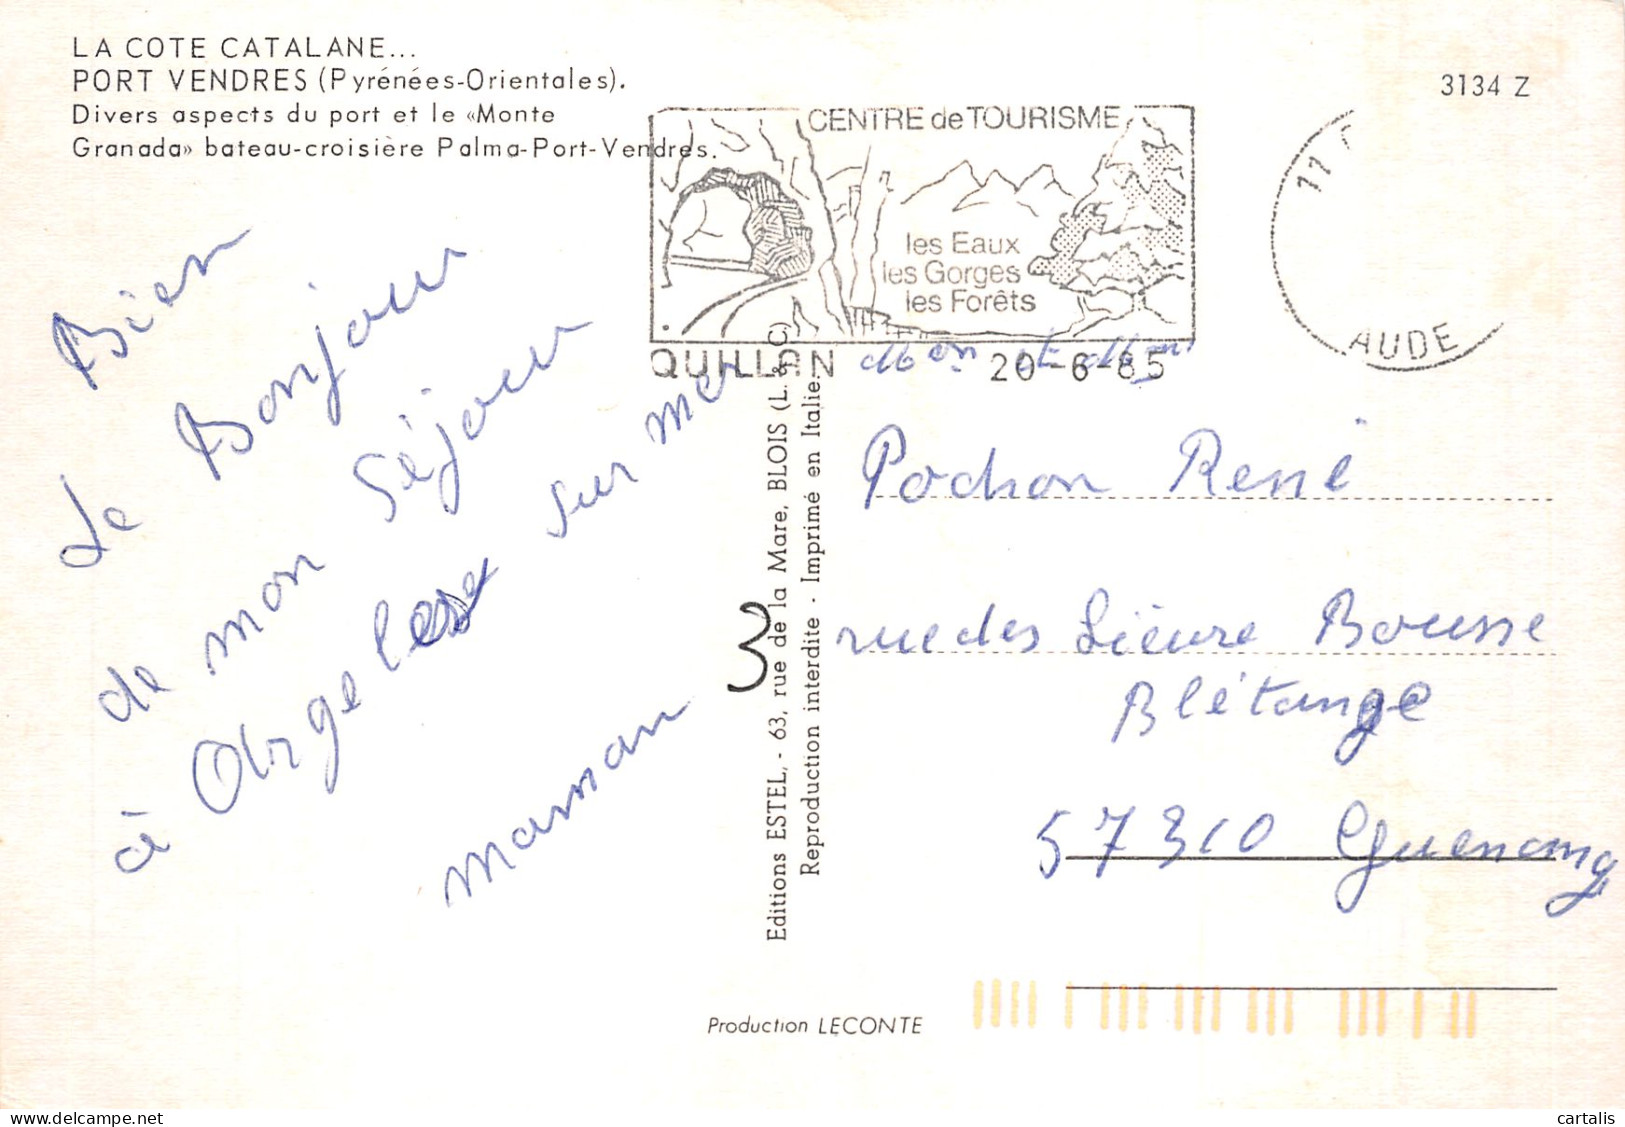 LA COTE CATALANE...
PORT VENDRES (Pyrénées-Orientales).
Divers aspects du port et le «Monte
Granada» bateau-croisière Palma-Port-Vendres.
3134 Z
CENTRE de TOURISME
les Eaux
les Gorges
les Forêts
QUILLAN 20-6-85
11
AUDE
Bien
Le Bonjour
de mon Séjour
à Argeles sur mer
maman
3
Editions ESTEL, - 63, rue de la Mare, BLOIS (L. & C)
Reproduction interdite - Imprimé en Italie.
Pochon René
rue des Lièvre Bousse
Blétange
57310 Guenang
Production LECONTE
cartalis